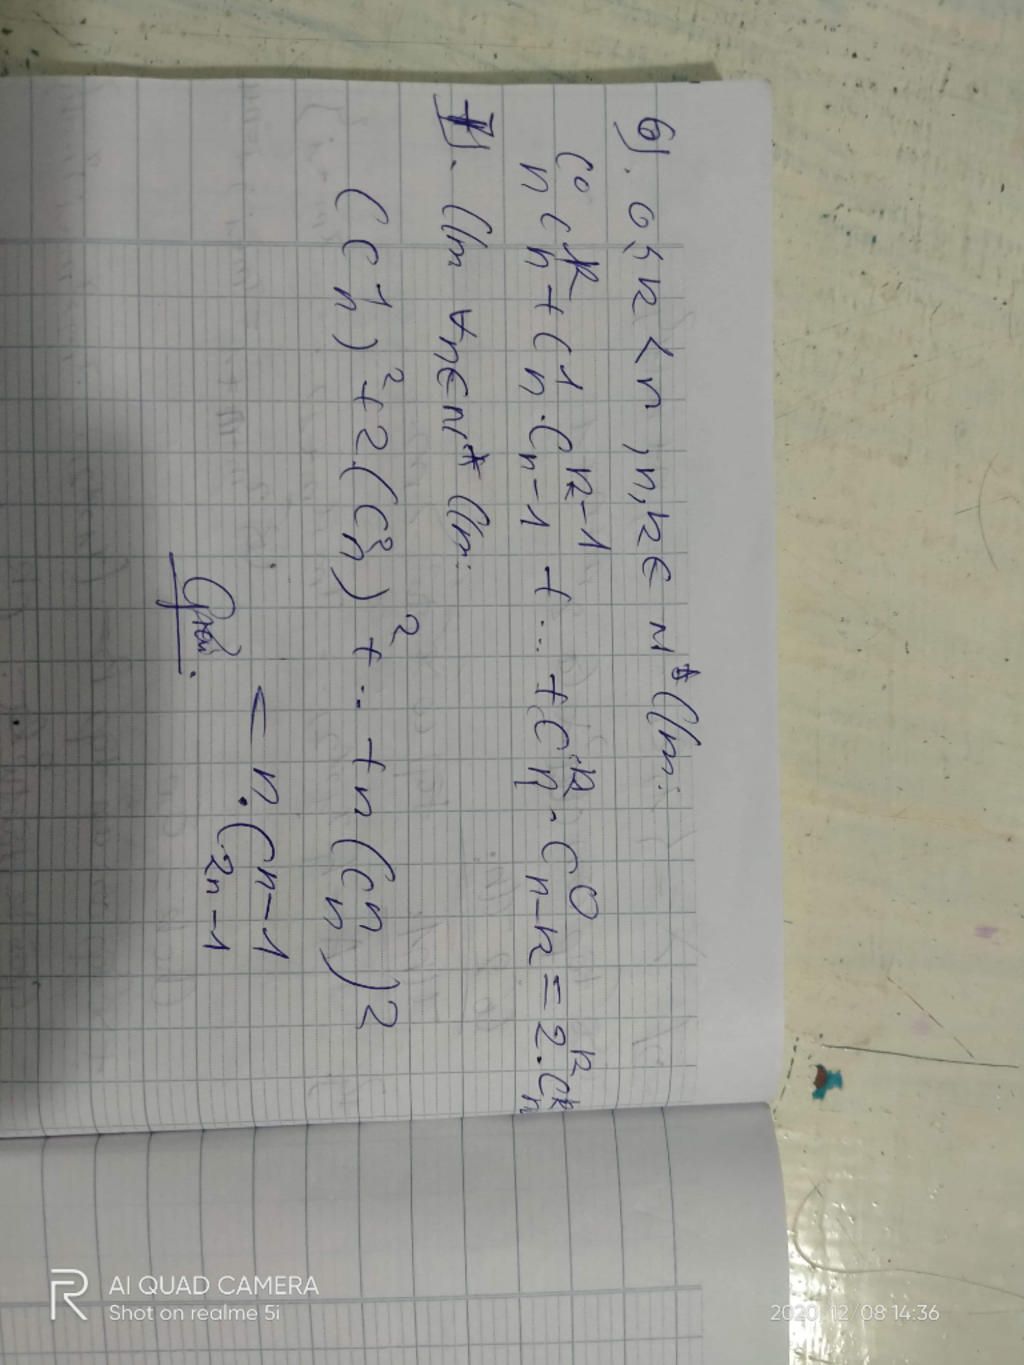 6). 0 ≤ k < n , n, k ∈ N* Cm:
C⁰ₙ Cᵏₙ + C¹ₙ . Cᵏ⁻¹ₙ₋₁ + ... + Cᵏₙ . C⁰ₙ₋ₖ = 2ᵏ . Cᵏₙ
7). Cm ∀n ∈ N* Cm:
(C¹ₙ)² + 2.(C²ₙ)² + ... + n(Cⁿₙ)²
= n . Cⁿ⁻¹₂ₙ₋₁
Giải.
AI QUAD CAMERA
Shot on realme 5i
2020/12/08 14:36